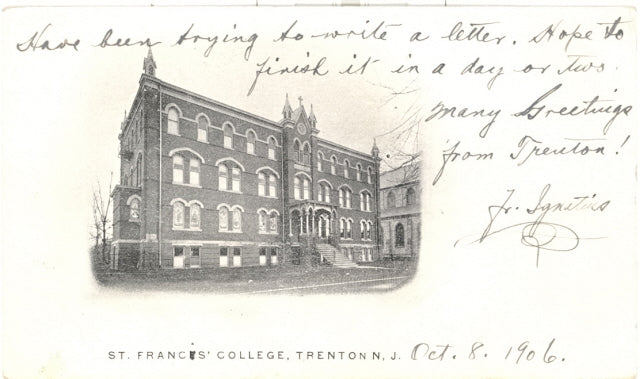 Have been trying to write a letter. Hope to
finish it in a day or two.
Many Greetings
from Trenton!
Fr. Ignatius
ST. FRANCIS' COLLEGE, TRENTON N, J. Oct. 8. 1906.